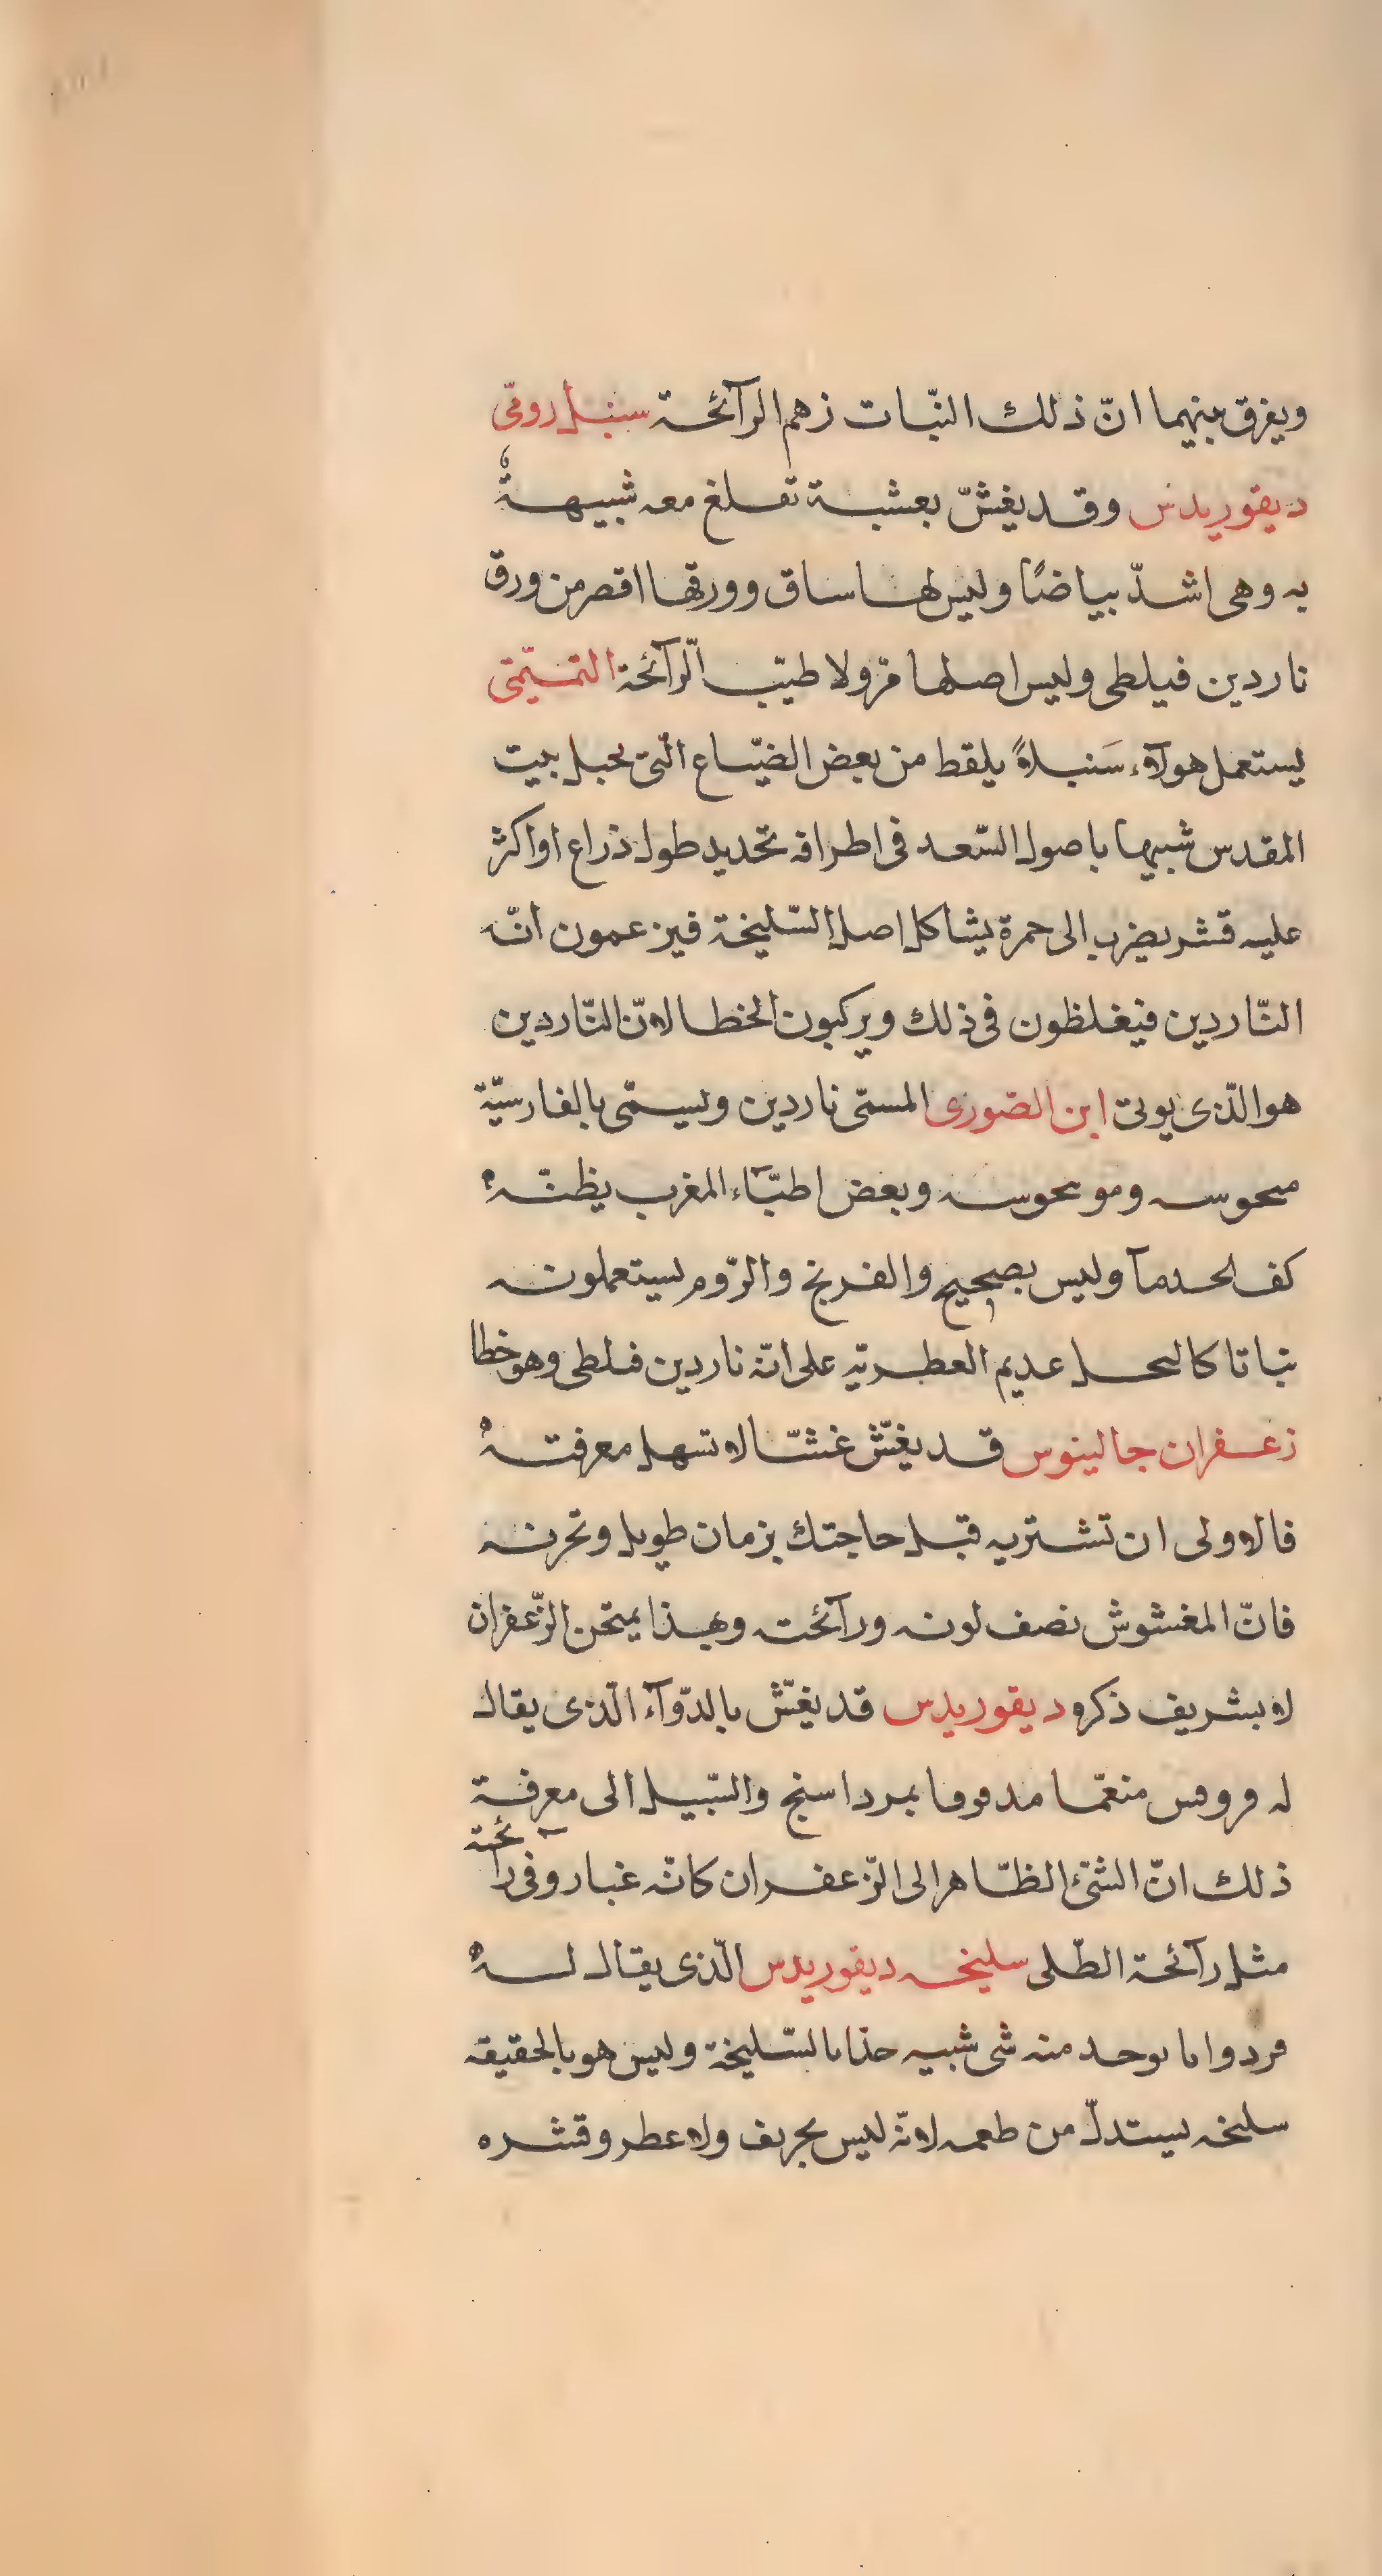 ويفرق بينهما انّ ذلك النّبات زهم الرآئحة سنبل رومّى
ديقوريدس وقد يغشّ بعشبة تقلع معه شبيهة
به وهى اشدّ بياضًا وليس لها ساق وورقها اقصر من ورق
ناردين فيلطى وليس اصلها مرّ ولا طيّب الرآئحة التمّيمّى
يستعمل هولآء سَنبلاً يلقط من بعض الضيّاع الّتى بجبل بيت
المقدس شبيها باصول السّعد فى اطرافه تحديد طول ذراع او اكثر
عليه قشر يضرب الى حمرة يشاكل اصل السّليخة فيزعمون انّه
النّاردين فيغلظون فى ذلك ويركبون الخطا لانّ النّاردين
هو الذّى يوتى ابن الصّورى المسمّى ناردين ويسمّى بالفارسيّة
وبعض اطبّآء المغرب يظنّه
كف وليس بصحيح والفرنج والرّوم يستعملونه
نباتا عديم العطريّه على انّه ناردين فلطى وهو خطا
زعفران جالينوس قد يغّش غشّا لا تسهل معرفته
فالاولى ان تشتريه قبل حاجتك بزمان طويل وتخزنه
فانّ المغشوش نصف لونه ورآئحته وبهذا يمتحن الزّعفران
لا بشريف ذكره ديقوريدس قد يغّش بالدّوآء الّذى يقال
له منعّما مدفوفا بمرداسنج والسّبيل الى معرفة
ذلك انّ الشّئ الظّاهر الى الزّعفران كانّه غبار وفى رآئحة
مثل رآئحة الطّلى سليخه ديقوريدس الّذى يقال له
يوجد منه شى شبيه جدّا بالسّليخة وليس هو بالحقيقه
سليخه يستدلّ من طعمه لانّه ليس بحريف ولا عطر وقشره